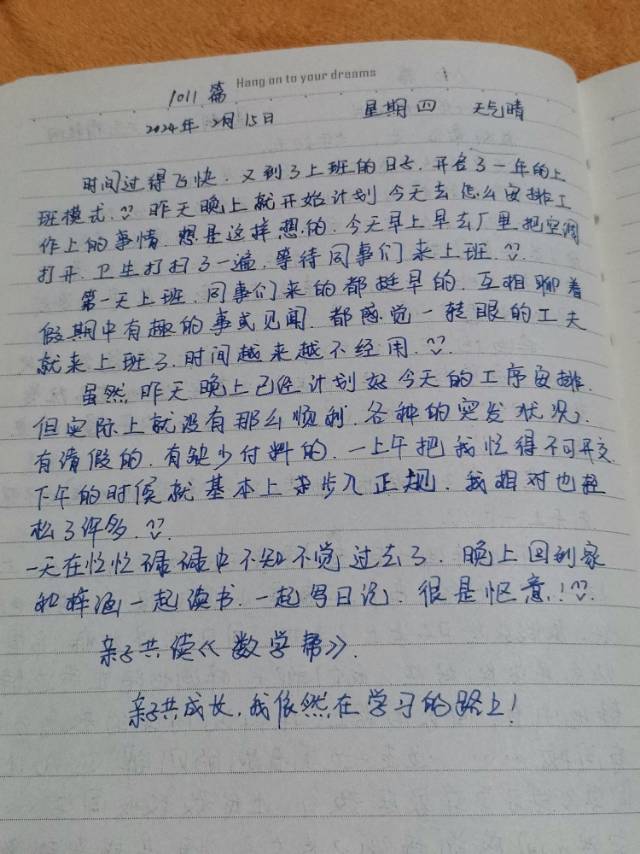 Hang on to your dreams
1011篇
2024年2月15日 星期四 天气晴
时间过得飞快.又到了上班的日子.开启了一年的上
班模式.昨天晚上就开始计划今天去怎么安排工
作上的事情.想是这样想的.今天早上早去厂里把空调
打开.卫生打扫了一遍.等待同事们来上班.
第一天上班.同事们来的都挺早的.互相聊着
假期中有趣的事或见闻.都感觉一转眼的工夫
就来上班了.时间越来越不经用.
虽然昨天晚上已经计划好今天的工序安排.
但实际上就没有那么顺利.各种的突发状况.
有请假的.有缺少付料的.一上午把我忙得不可开交
下午的时候就基本上步入正规.我相对也轻
松了许多.
一天在忙忙碌碌中不知不觉过去了.晚上回到家
和梓涵一起读书.一起写日记.很是惬意!
亲子共读《数学帮》.
亲子共成长,我依然在学习的路上!